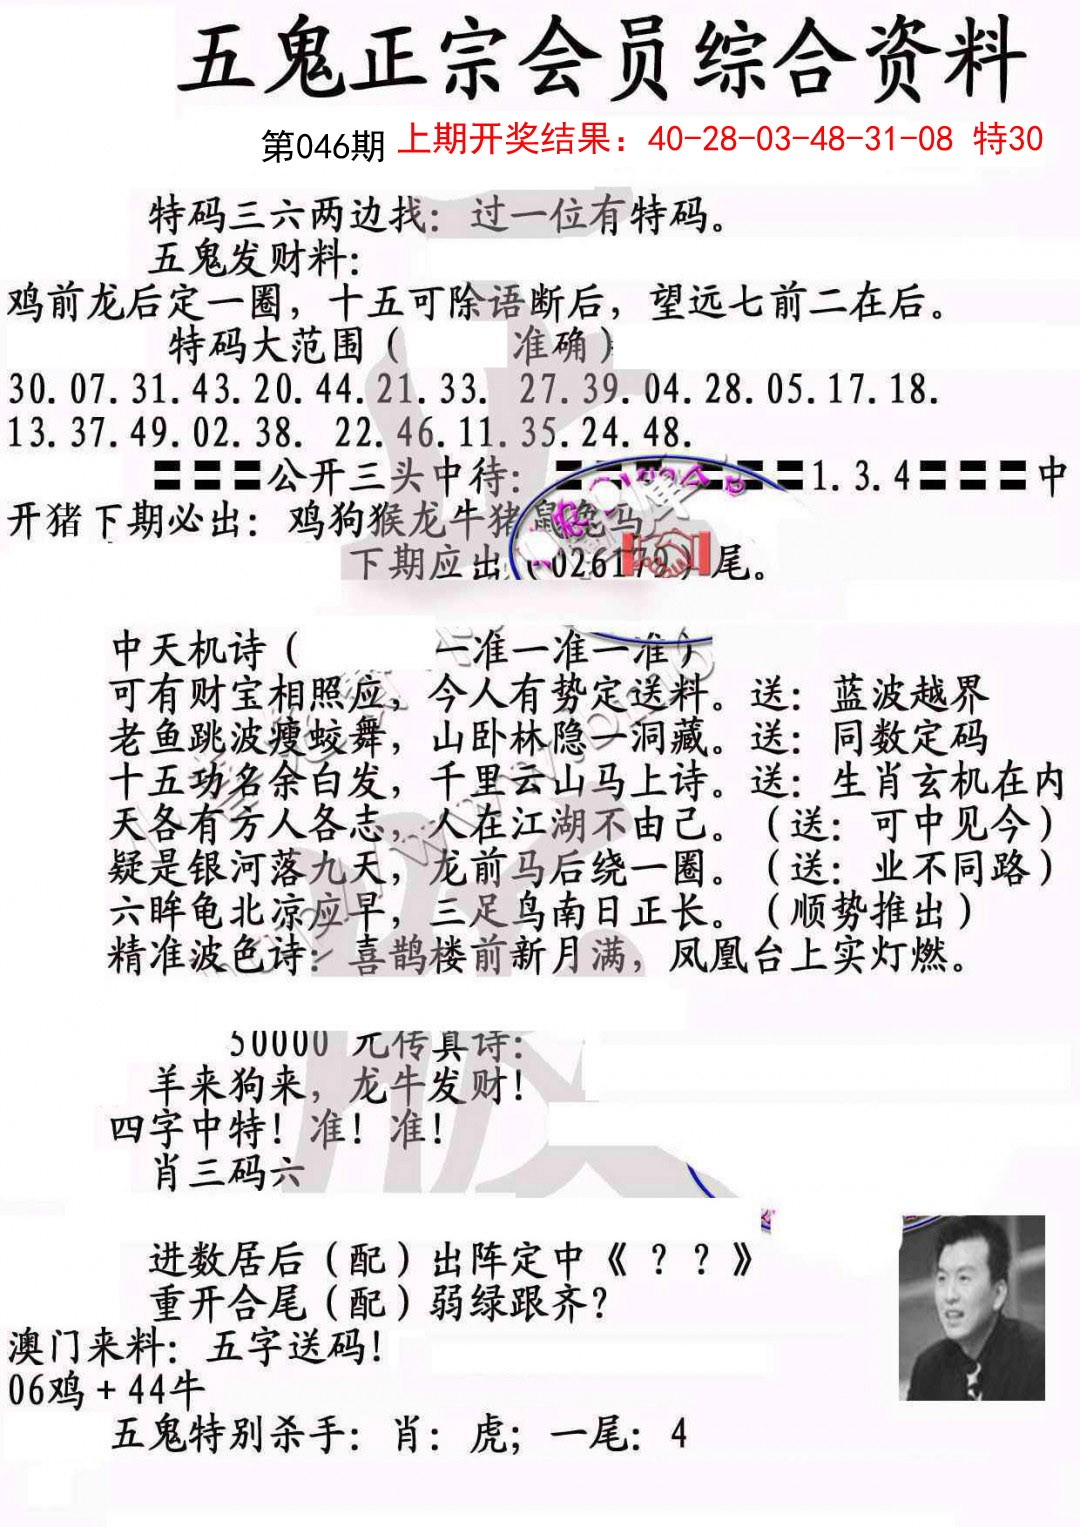 五鬼正宗会员综合资料
第046期 上期开奖结果：40-28-03-48-31-08 特30
特码三六两边找：过一位有特码。
五鬼发财料：
鸡前龙后定一圈，十五可除语断后，望远七前二在后。
特码大范围（ 准确）
30.07.31.43.20.44.21.33. 27.39.04.28.05.17.18.
13.37.49.02.38. 22.46.11.35.24.48.
〓〓〓公开三头中待：〓〓〓〓〓〓1.3.4〓〓〓中
开猪下期必出：鸡狗猴龙牛猪鼠兔马
下期应出（02617 ）尾。
中天机诗（ 一准一准一准）
可有财宝相照应，今人有势定送料。送：蓝波越界
老鱼跳波瘦蛟舞，山卧林隐一洞藏。送：同数定码
十五功名余白发，千里云山马上诗。送：生肖玄机在内
天各有方人各志，人在江湖不由己。（送：可中见今）
疑是银河落九天，龙前马后绕一圈。（送：业不同路）
六眸龟北凉应早，三足鸟南日正长。（顺势推出）
精准波色诗：喜鹊楼前新月满，凤凰台上实灯燃。
50000 元传真诗：
羊来狗来，龙牛发财！
四字中特！准！准！
肖三码六
进数居后（配）出阵定中《？？》
重开合尾（配）弱绿跟齐？
澳门来料：五字送码！
06鸡+44牛
五鬼特别杀手：肖：虎；一尾：4